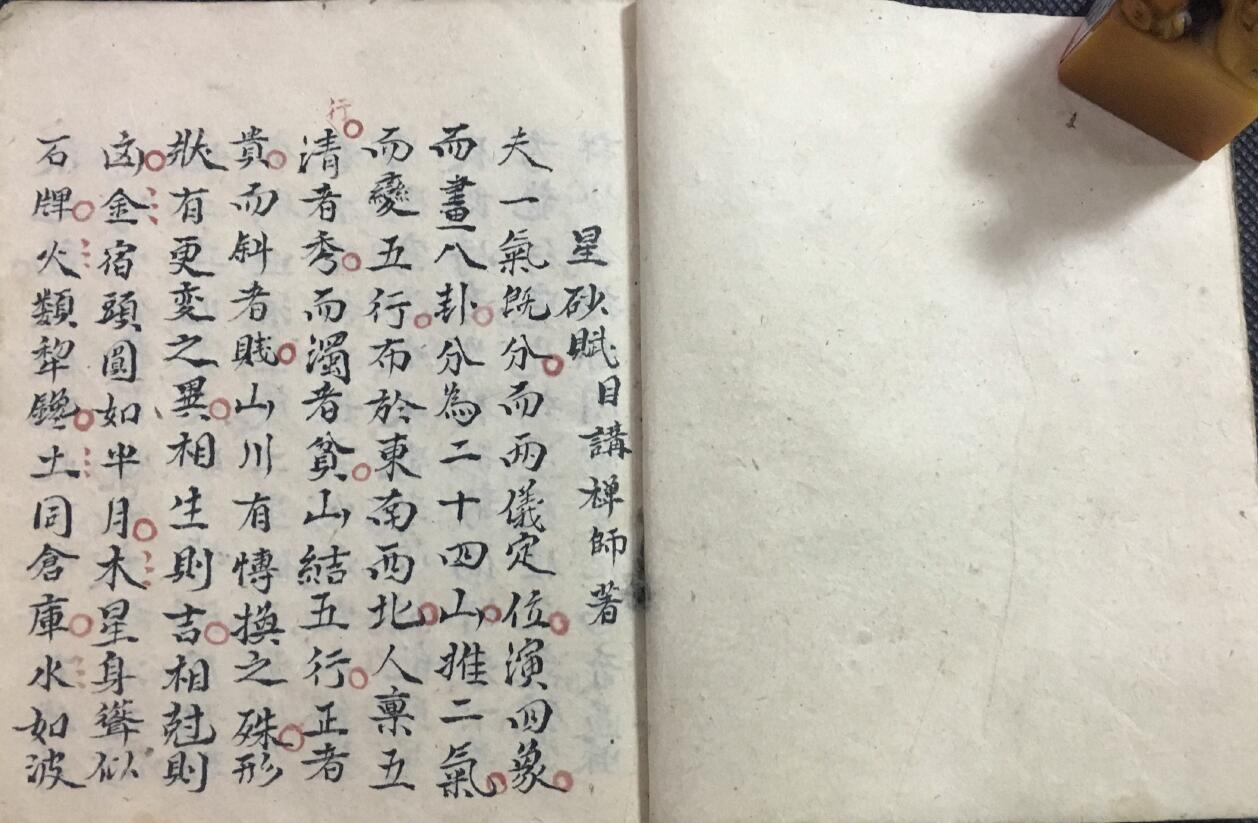 星砂賦目講禅師著
夫一氣既分而两儀定位演四象
而畫八卦分為二十四山推二氣
而變五行布於東南西北人禀五
行
清者秀而濁者貧山結五行正者
貴而斜者賤山川有慱換之殊形
狀有更变之異相生則吉相尅則
凶金宿頭圓如半月木星身聳似
石牌火類犂鑱土同倉庫水如波